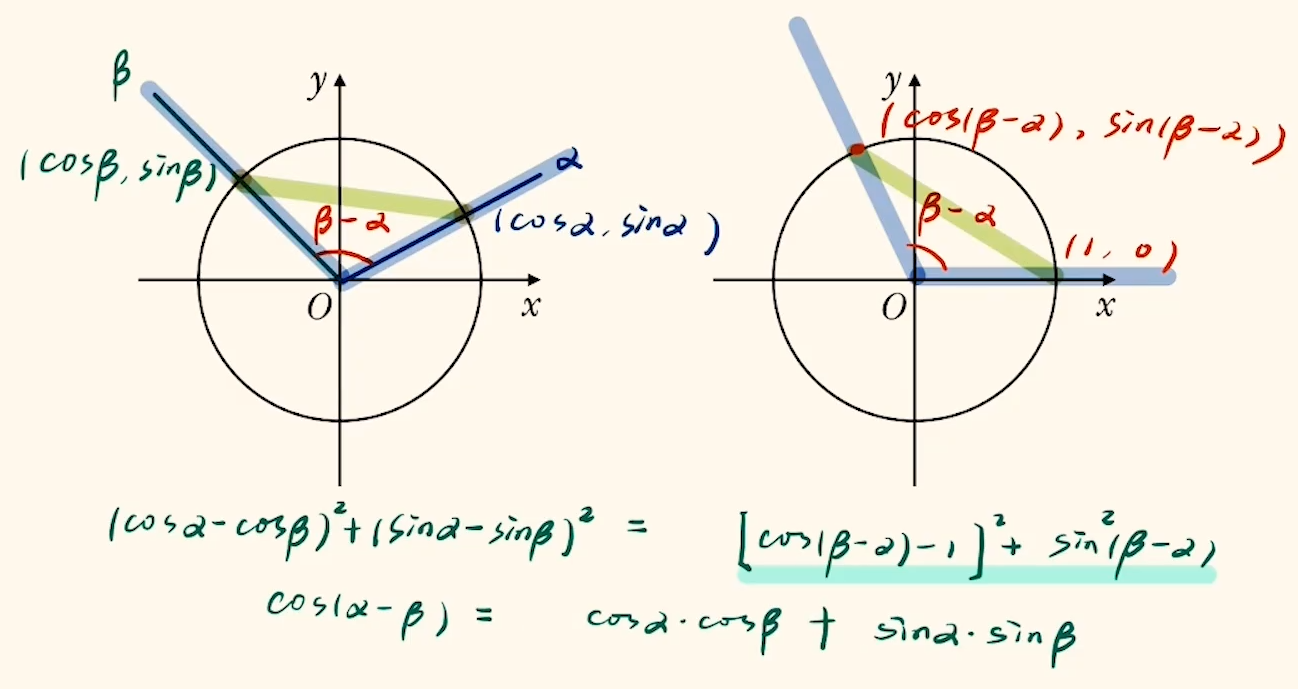 β
y
(cosβ, sinβ)
β-α
α
(cosα, sinα)
O
x
y
(cos(β-α), sin(β-α))
β-α
(1, 0)
O
x
(cosα-cosβ)²+(sinα-sinβ)² = [cos(β-α)-1]²+ sin²(β-α)
cos(α-β) = cosα·cosβ + sinα·sinβ